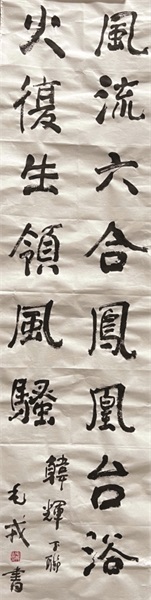 風流六合鳳凰台浴
火復生領風騷
韓輝下聯
毛戎書